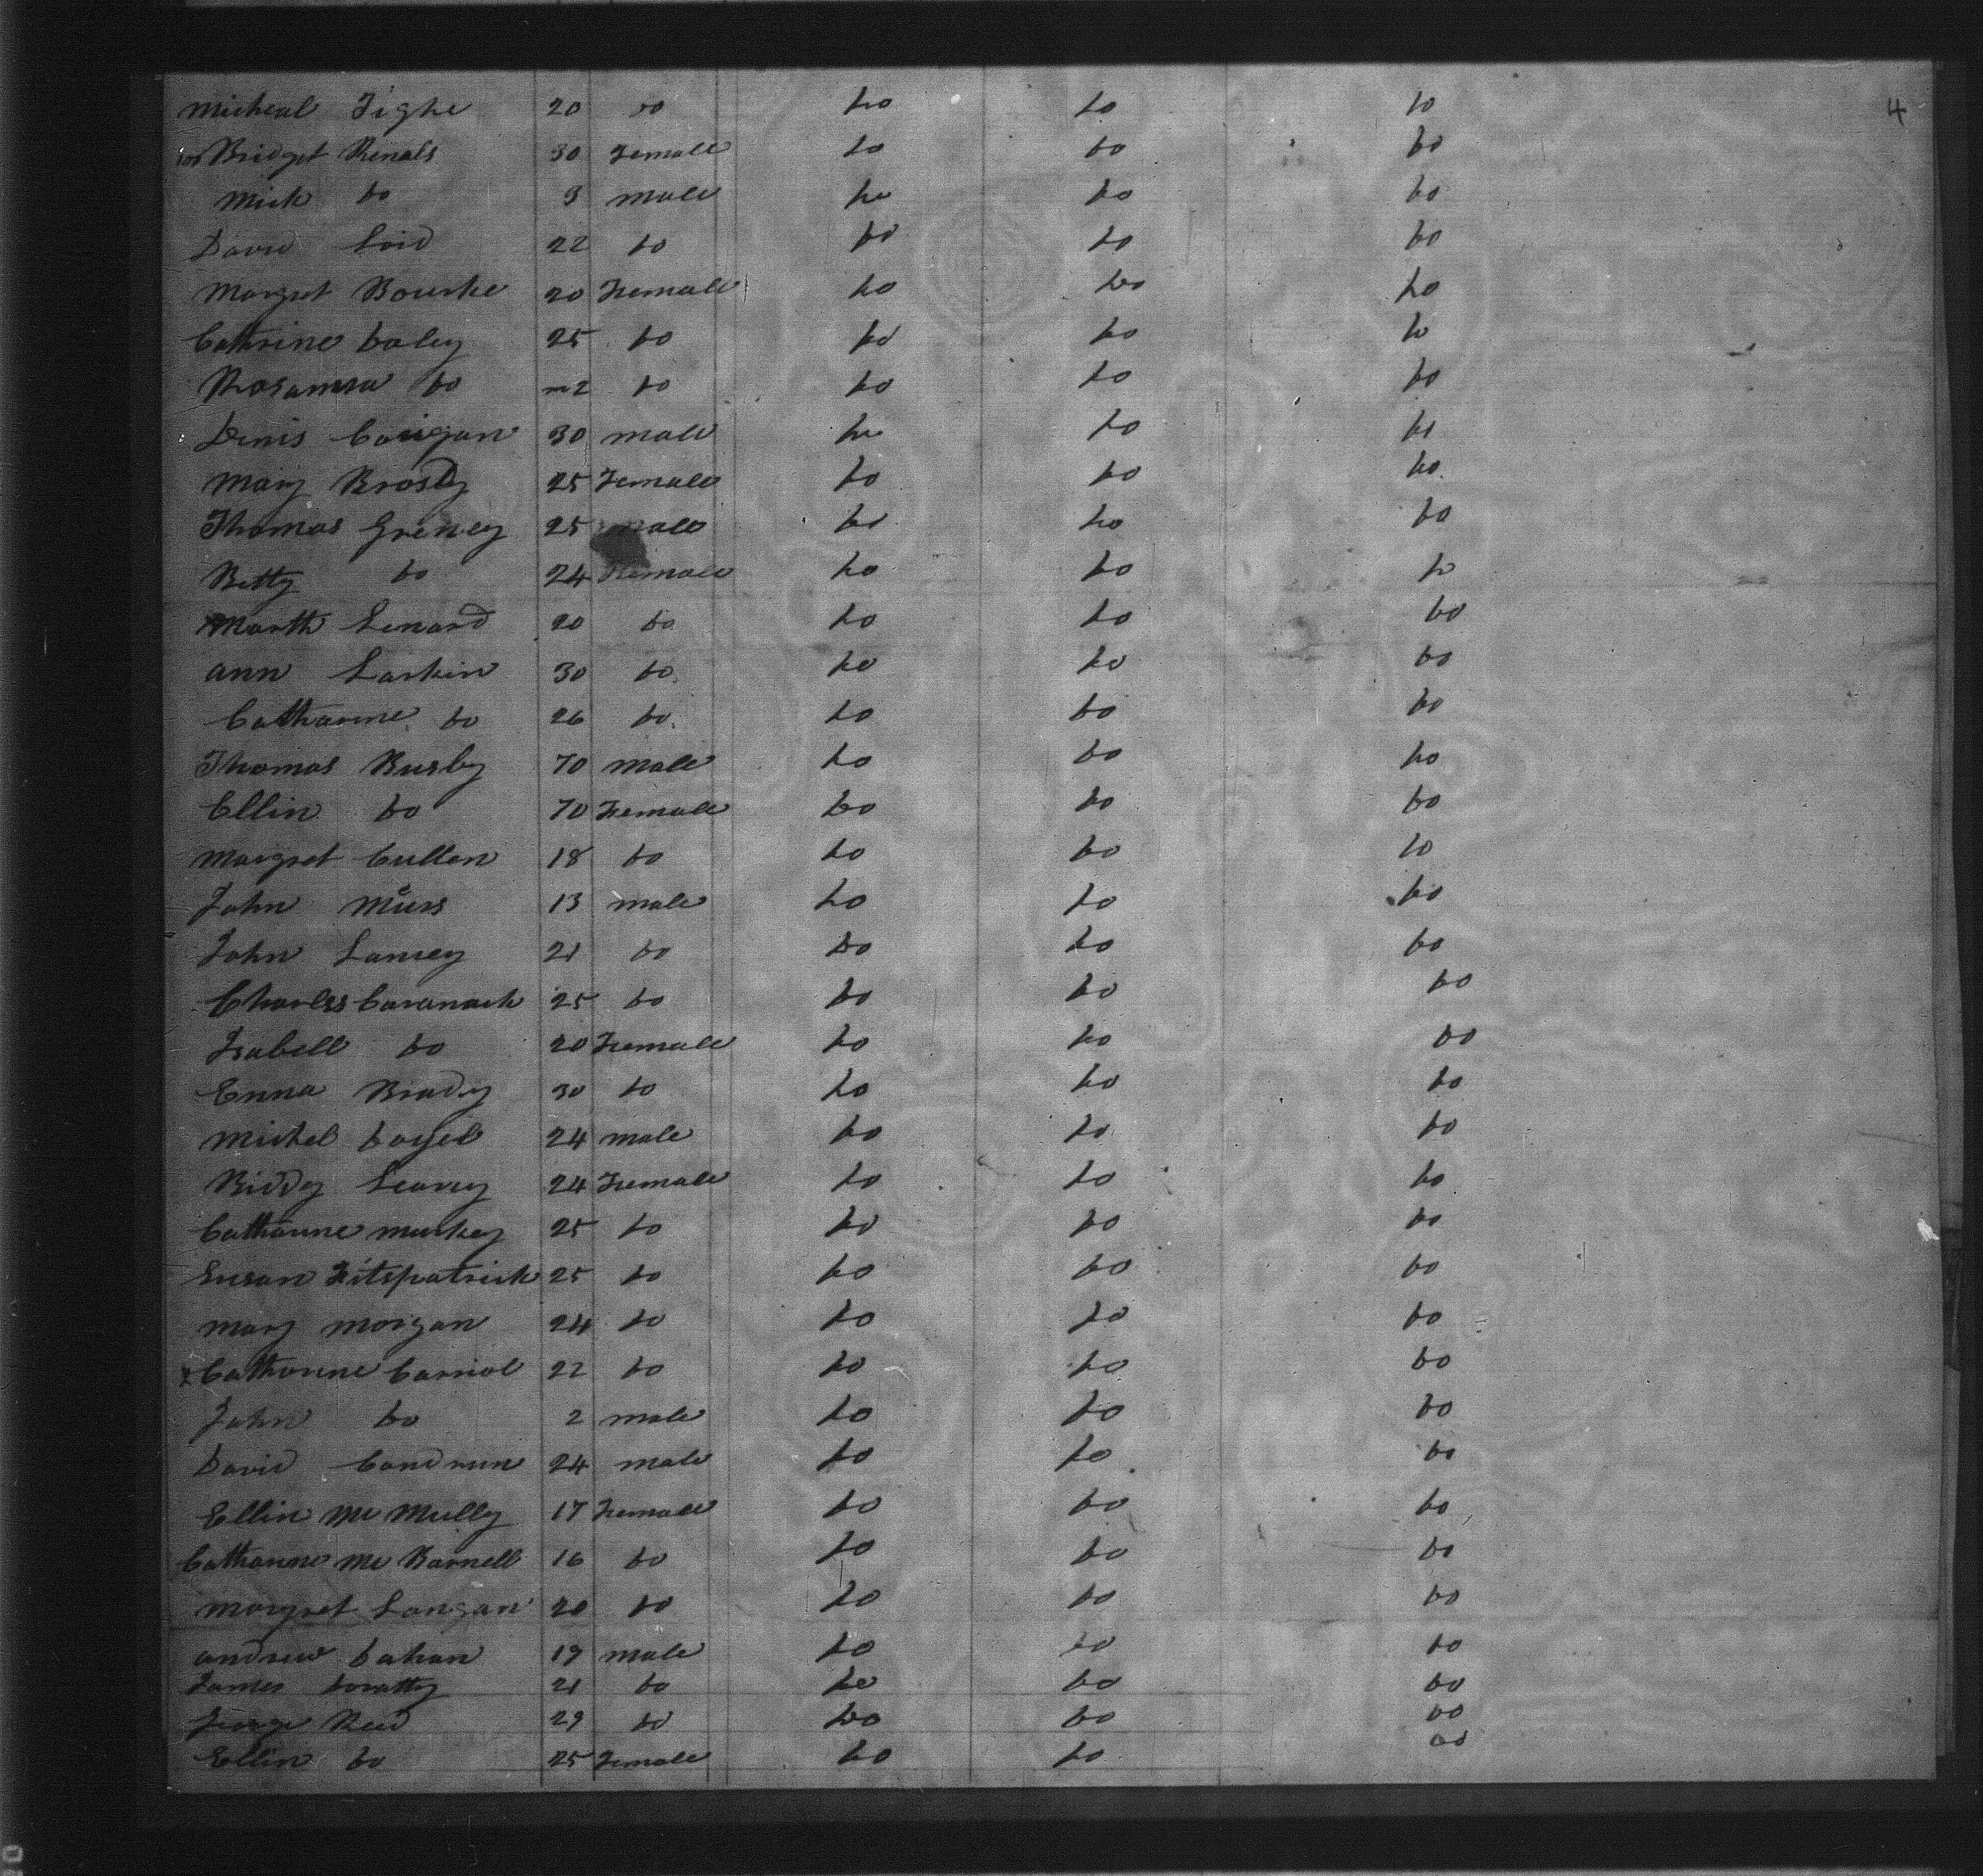 Micheal Tighe 20 do do do do 4
Bridget Renals 30 Female do do do
Mick do 9 male do do do
David Loid 22 do do do do
Margret Bourke 20 Female do do do
Cathrine Daley 25 do do do do
Rosanna do m2 do do do do
Denis Corigan 30 male do do do
Mary Brosdy 25 Female do do do
Thomas Greney 25 male do do do
Betty do 24 Female do do do
Marth Lenard 20 do do do do
ann Larkin 30 do do do do
Catharine do 26 do do do do
Thomas Busby 70 male do do do
Ellin do 70 Female do do do
Margret Cullen 18 do do do do
John 13 male do do do
John Lamey 21 do do do do
Charles Cavanack 25 do do do do
Isabell do 20 Female do do do
Enna Brady 30 do do do do
Michel 24 male do do do
Biddy Leavey 24 Female do do do
Catharine Murkey 25 do do do do
Susan Fitspatrick 25 do do do do
Mary Morgan 24 do do do do
x Catharine Carriol 22 do do do do
John do 2 male do do do
David Condrun 24 male do do do
Ellin Mc Mully 17 Female do do do
Catharine Mc Barnell 16 do do do do
Margret Langan 20 do do do do
andrew Dahan 19 male do do do
James Doratty 21 do do do do
George Reed 29 do do do do
Ellin do 25 Female do do do